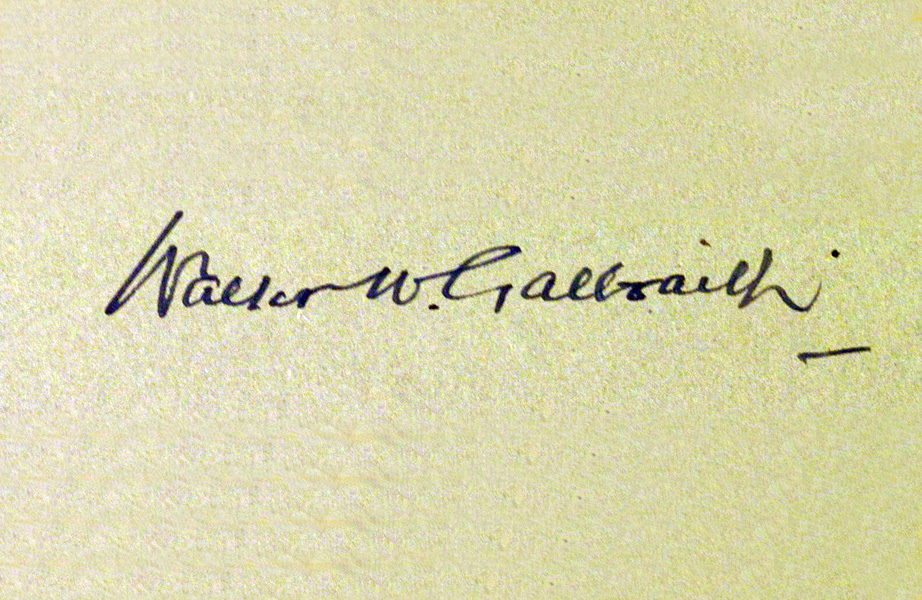 Walter W. Galbraith